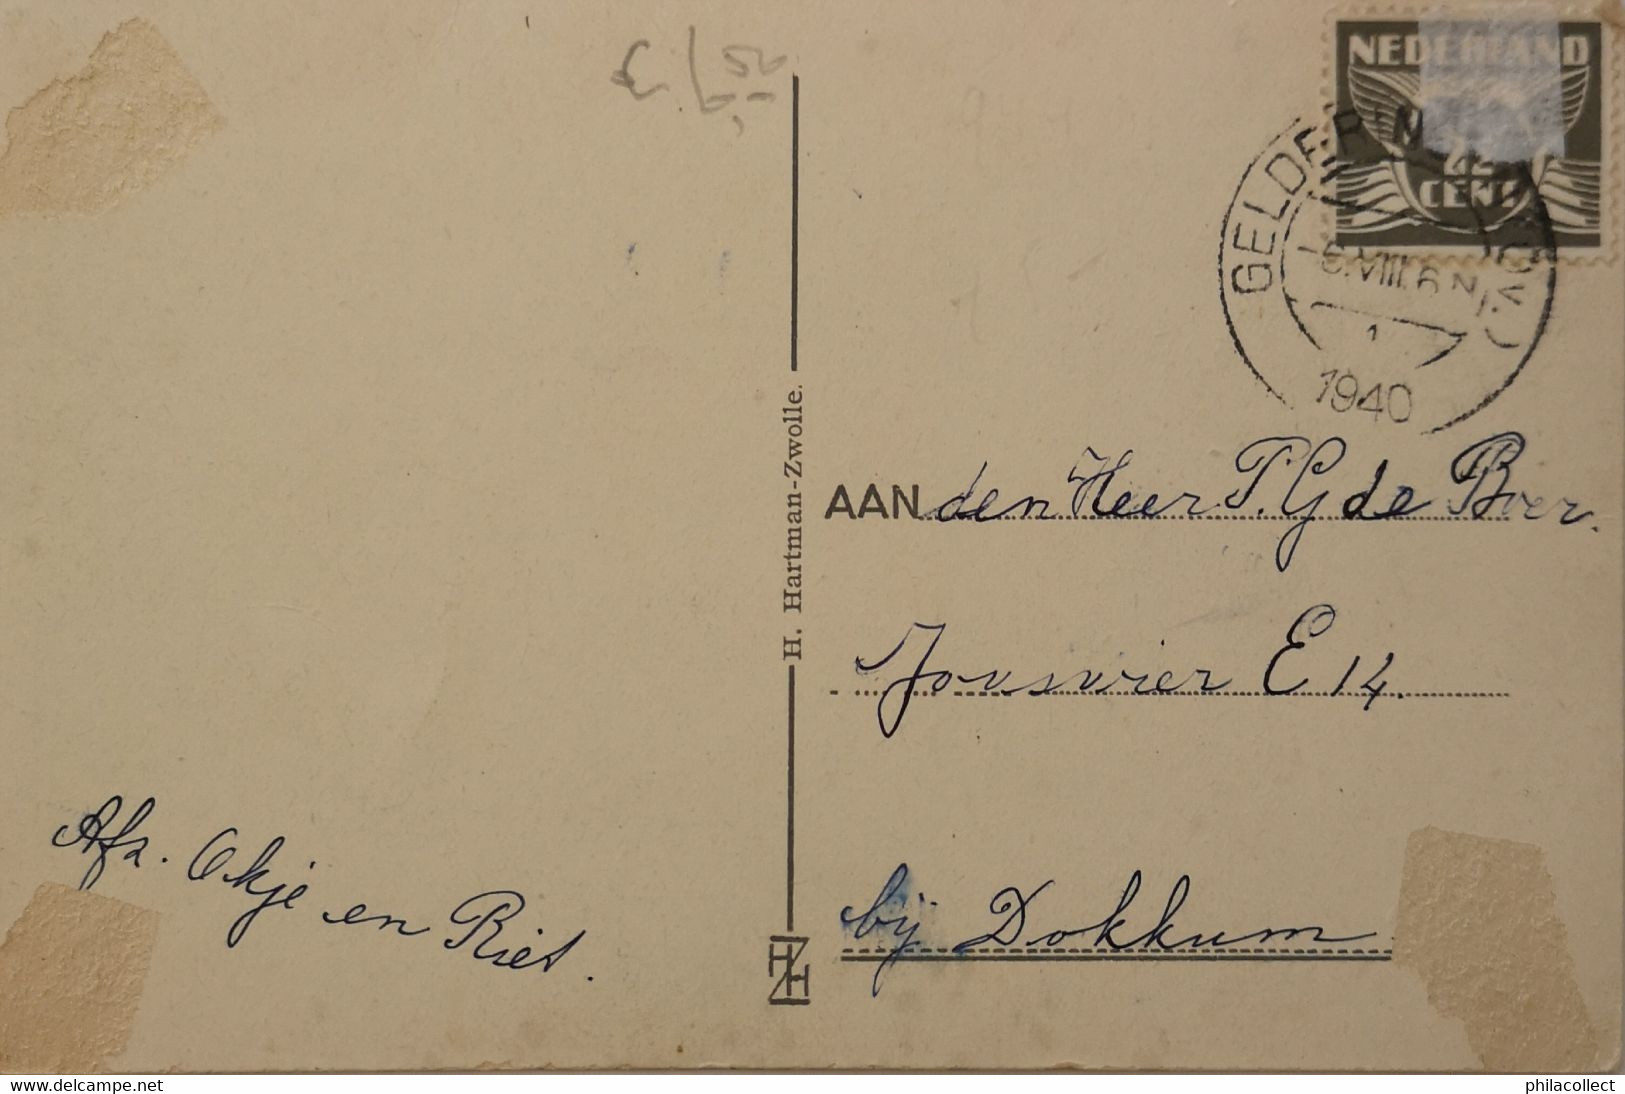 NEDERLAND
2½
CENT
GELDERM
(OV.)
VIII.6 N
1
1940
H. Hartman-Zwolle.
AAN den Heer T. G de Boer.
Jouswier E 14.
bij Dokkum
Afz. Okje en Riet.
delcampe.net
philacollect